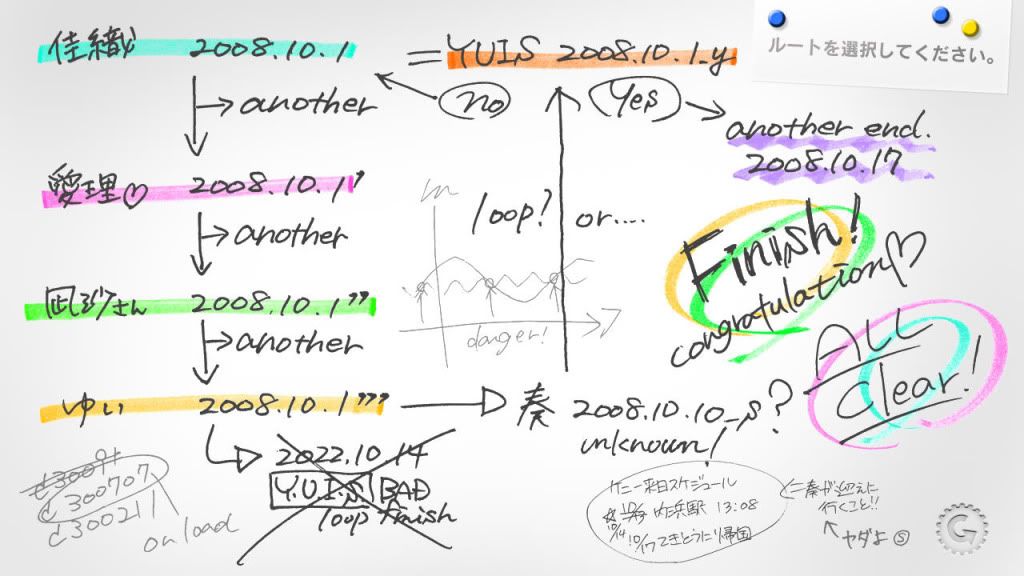 ルートを選択してください。
佳織 2008.10.1
= YUIS 2008.10.1_y
no
Yes
another
another end.
2008.10.17
愛理♡ 2008.10.1'
another
loop? or....
Finish!
congratulation♡
凪沙さん 2008.10.1''
another
danger!
ALL
Clear!
ゆい 2008.10.1'''
奏 2008.10.10_s?
unknown!
2022.10.14
Y.U.I.S BAD
loop finish
d300707
d300211
on load
ケニー来日スケジュール
内浜駅 13:08
10/14 10/17てきとうに帰国
奏が迎えに
行くこと!!
ヤダよ Ⓢ
G